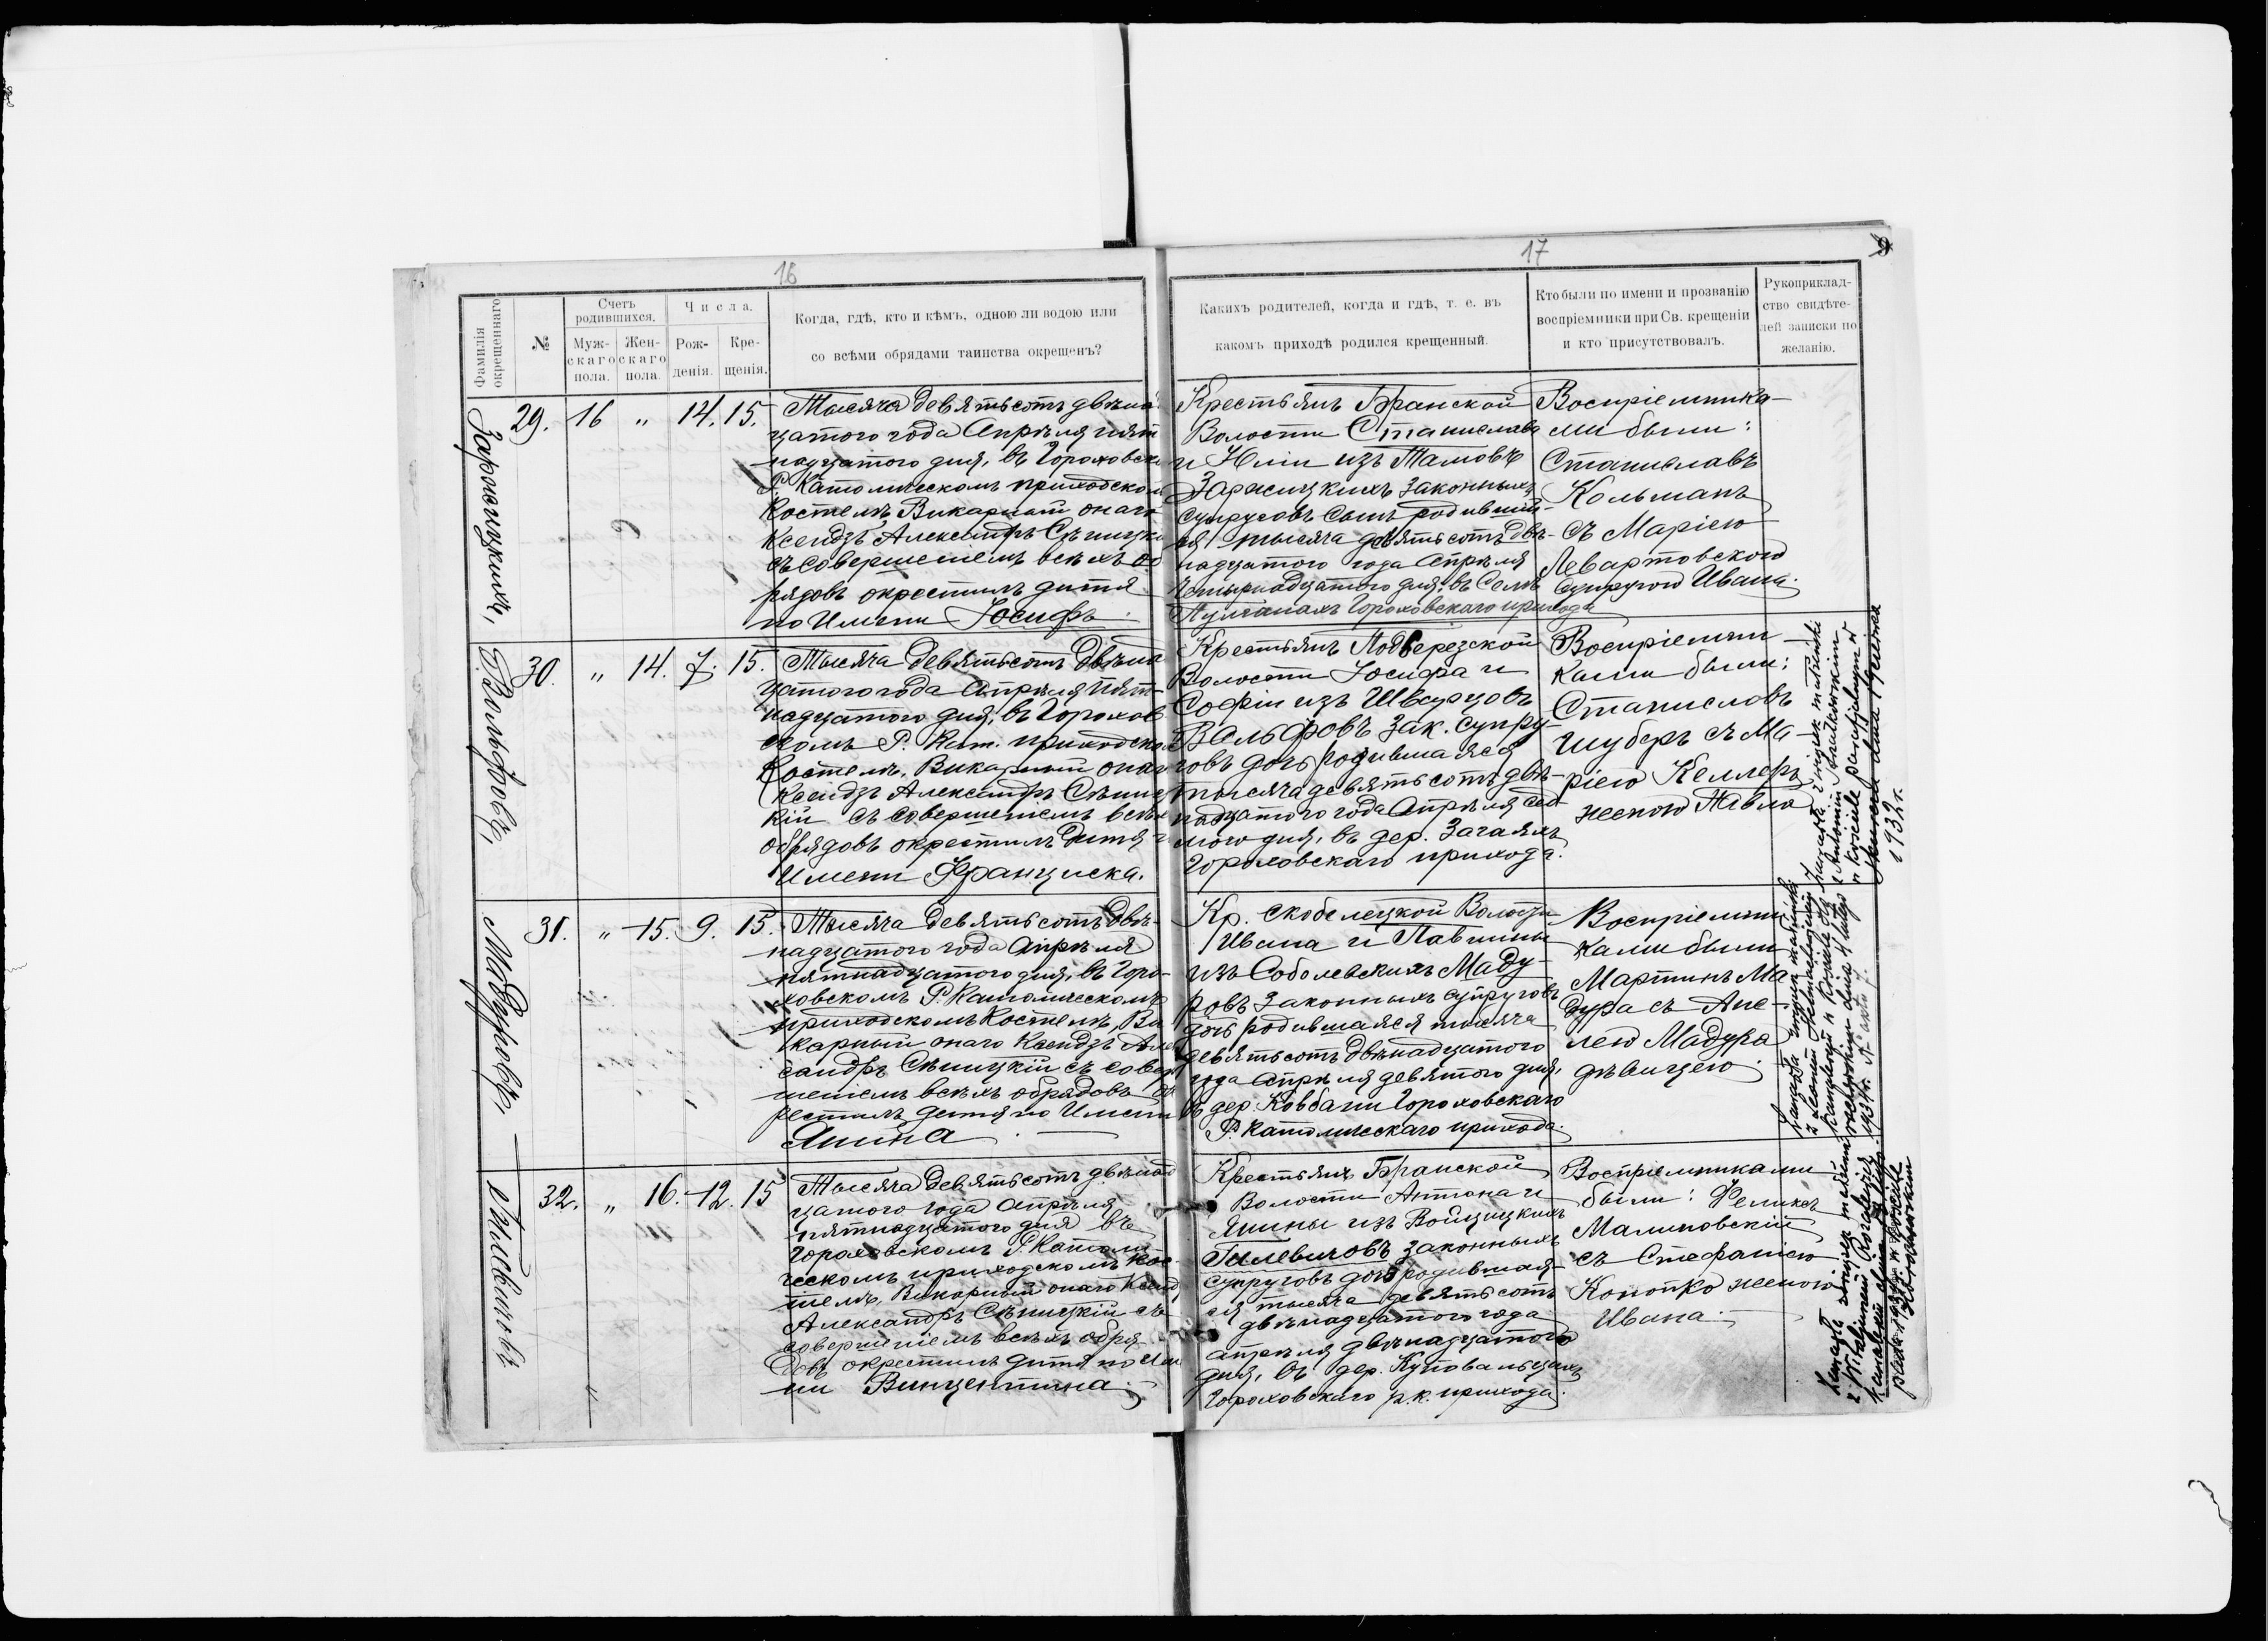 16
17
Фамилія окрещеннаго
№
Счетъ родившихся.
Мужскаго пола.
Женскаго пола.
Числа.
Рожденія.
Крещенія.
Когда, гдѣ, кто и кѣмъ, одною ли водою или
со всѣми обрядами таинства окрещенъ?
Какихъ родителей, когда и гдѣ, т. е. въ
какомъ приходѣ родился крещенный.
Кто были по имени и прозванію
воспріемники при Св. крещеніи
и кто присутствовалъ.
Рукоприклад-
ство свидѣте-
лей записки по
желанію.
29. 16 " 14. 15.
Тысяча девятьсотъ двѣнад
цатого года Апрѣля пят
надцатого дня, въ Гороховско
Р. Католическомъ приходском
Костелѣ, Викарный онаго
Ксендзъ Александръ Сѣницкі
съ совершеніемъ всѣхъ об
рядовъ окрестилъ дитя
по Имени Іосифъ.
Крестьянъ Бранской
Волости Станислава
и Юліи изъ
законныхъ
супруговъ сынъ родившій-
ся тысяча девятьсотъ двѣ-
надцатого года Апрѣля
четырнадцатого дня, въ Селѣ
Гороховскаго прихода
Воспріемника-
ми были:
Станиславъ
Кольманъ
съ Маріею
Левартовскою
супругою Ивана.
Вольфовъ,
30. " 14. 7. 15.
Тысяча девятьсотъ двѣнад
цатого года Апрѣля пят-
надцатого дня, въ Горохов
скомъ Р. Кат. приходском
Костелѣ, Викарный онаго
Ксендзъ Александръ Сѣниц
кій съ совершеніемъ всѣхъ
обрядовъ окрестилъ дитя
Имени Франциска.
Крестьянъ Подберезской
Волости Іосифа и
Софіи изъ Шварцовъ
Вольфовъ зак. супру-
говъ дочь родившаяся
тысяча девятьсотъ двѣ-
надцатого года Апрѣля седь
мого дня, въ дер. Загаяхъ
Гороховскаго прихода.
Воспріемни-
ками были:
Станиславъ
Шуберъ съ Ма-
ріею Келлеръ
женою Павла
1932 r.
Мадуровъ,
31. " 15. 9. 15.
Тысяча девятьсотъ двѣ-
надцатого года Апрѣля
пятнадцатого дня, въ Горо-
ховскомъ Р. Католическомъ
приходскомъ Костелѣ, Ви
карный онаго Ксендзъ Алек
сандръ Сѣницкій съ совер
шеніемъ всѣхъ обрядовъ ок
рестилъ дитя по Имени
Янина
Кр. Скобелецкой Волости
Ивана и Павлины
изъ Соболевскихъ Маду-
ровъ законныхъ супруговъ
дочь родившаяся тысяча
девятьсотъ двѣнадцатого
года Апрѣля девятого дня,
въ дер. Ковбани Гороховскаго
Р. Католическаго прихода.
Воспріемни-
ками были
Мартинъ Ма
дура съ Ане-
лею Мадура
дѣвицею
Гилевичовъ
32. " 16. 12. 15
Тысяча девятьсотъ двѣнад
цатого года Апрѣля
пятнадцатого дня въ
Гороховскомъ Р. Католи
ческомъ приходскомъ Кос-
телѣ, Викарный онаго Ксендз
Александръ Сѣницкій съ
совершеніемъ всѣхъ обря
довъ окрестилъ дитя по Име
ни Винцентина.
Крестьянъ Бранской
Волости Антона и
Янины изъ Войцицкихъ
Гилевичовъ законныхъ
супруговъ дочь родившая-
ся тысяча девятьсотъ
двѣнадцатого года
апрѣля двѣнадцатого
дня, въ дер. Куповальцахъ
Гороховскаго р.к. прихода.
Воспріемниками
были: Феликсъ
Малиновскій
съ Стефаніею
Конопко женою
Ивана.